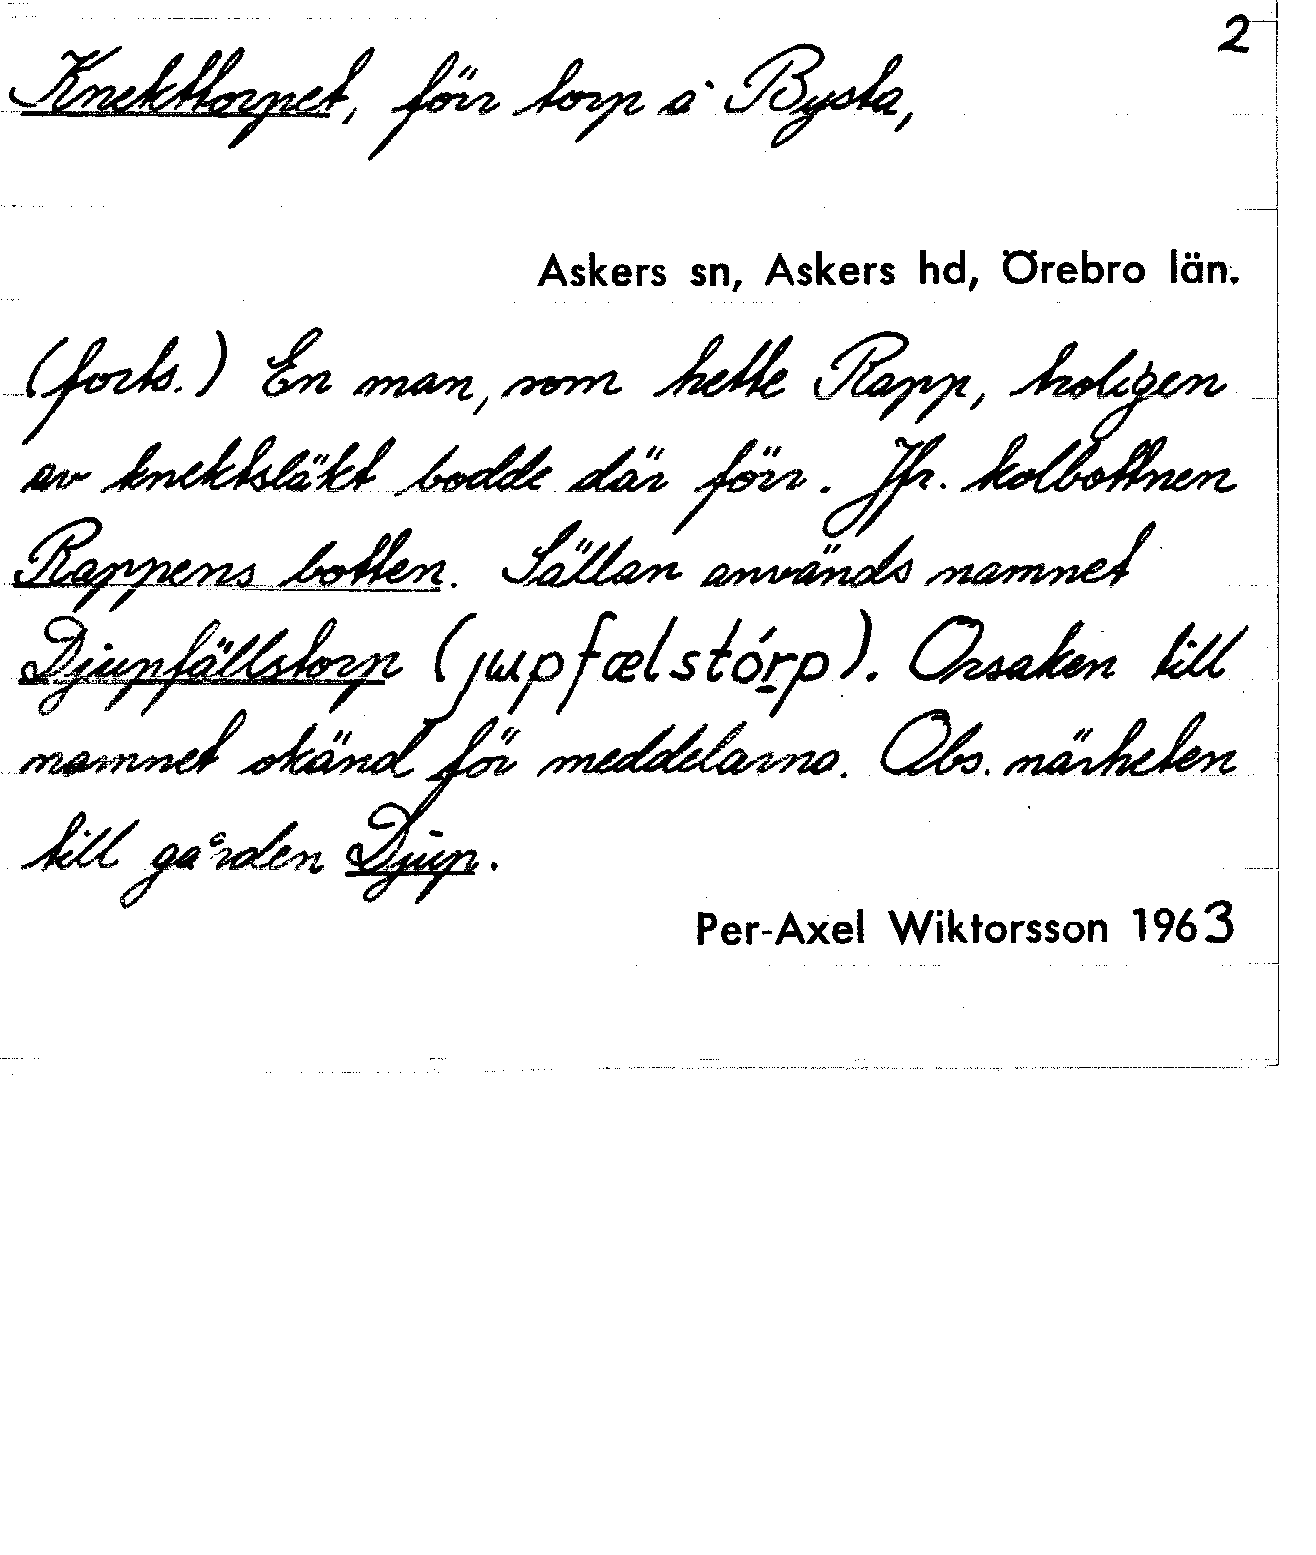 2
Knekttorpet, förr torp å Bysta,
Askers sn, Askers hd, Örebro län.
(forts.) En man, som hette Rapp, troligen
av knektsläkt bodde där förr. Jfr. kolbottnen
Rappens botten. Sällan används namnet
Djupfällstorp (jupfælstórp). Orsaken till
namnet okänd för meddelarna. Obs. närheten
till gården Djup.
Per-Axel Wiktorsson 1963